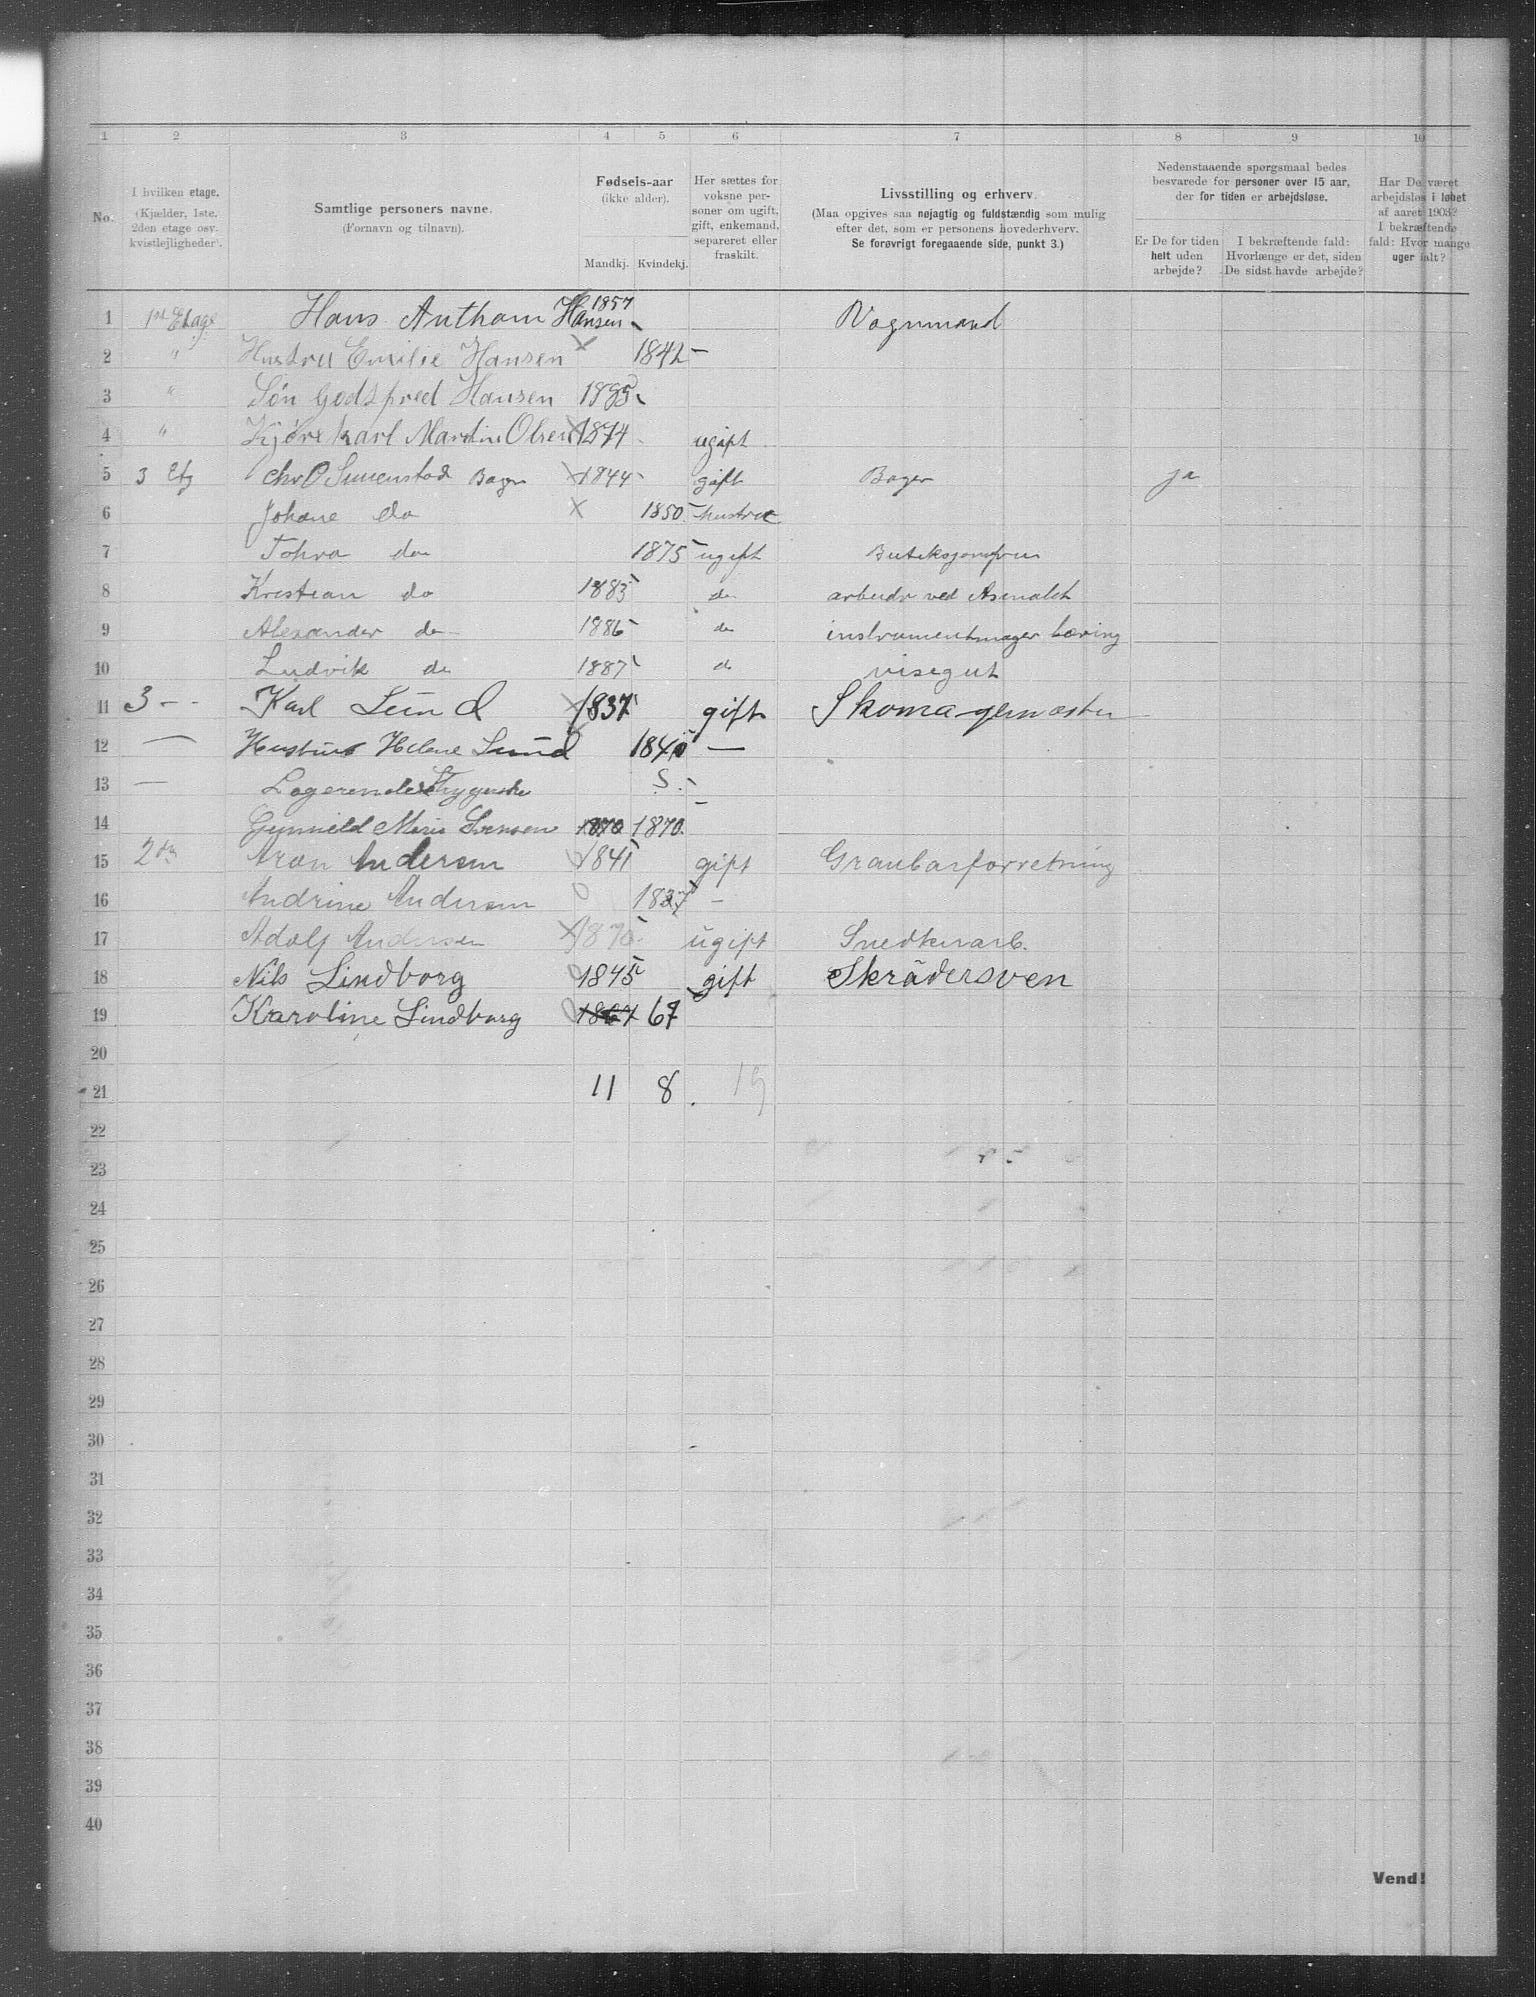 1 2 3 4 5 6 7 8 9 10
No.
I hvilken etage. (Kjælder, 1ste. 2den etage osv. kvistlejligheder).
Samtlige personers navne. (Fornavn og tilnavn).
Fødsels-aar (ikke alder).
Mandkj. Kvindekj.
Her sættes for voksne personer om ugift, gift, enkemand, separeret eller fraskilt.
Livsstilling og erhverv.
(Maa opgives saa nøjagtig og fuldstændig som mulig efter det, som er personens hovederhverv. Se forøvrigt foregaaende side, punkt 3.)
Nedenstaaende spørgsmaal bedes besvarede for personer over 15 aar, der for tiden er arbejdsløse.
Er De for tiden helt uden arbejde?
I bekræftende fald: Hvorlænge er det, siden De sidst havde arbejde?
Har De været arbejdsløs i løbet af aaret 1903? I bekræftende fald: Hvor mange uger ialt?
1 1st Etage Hans Anthom Hansen 1857 Vognmand
2 " Hustru Emilie Hansen 1842 –
3 " Søn Godsfred Hansen 1895
4 " Kjørekarl Martin Olsen 1874 ugift
5 3 Etg Chr O Simenstad Bager 1844 gift Bager ja
6 Johane do 1850 hustru
7 Tohra do 1875 ugift Butiksjomfru
8 Kristian do 1883 do arbeider ved Asenalet
9 Alexander do 1886 do instrumentmager læring
10 Ludvik do 1887 do visegut
11 3 – - Karl Lund 1837 gift Skomagermester
12 — Hustru Helene Lund 1840 —
13 — Logerende Strygerske S. -
14 Gunnild Marie Svensen 1870 1870
15 2 Aron Andersen 1841 gift Grønbarforretning
16 Andrine Andersen 1837 –
17 Adolf Andersen 1870 ugift Snedkerarb.
18 Nils Lindborg 1845 gift Skrädersven
19 Karoline Lindborg 1867 67
20
21 11 8. 19
22
23
24
25
26
27
28
29
30
31
32
33
34
35
36
37
38
39
40
Vend!